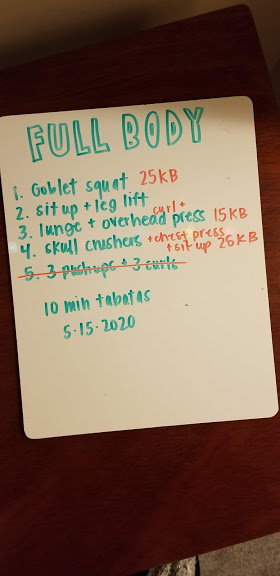 FULL BODY
1. Goblet squat 25KB
2. sit up + leg lift
3. lunge + curl + overhead press 15KB
4. skull crushers + chest press + sit up 25KB
5. 3 pushups + 3 curls
10 min tabatas
5.15.2020